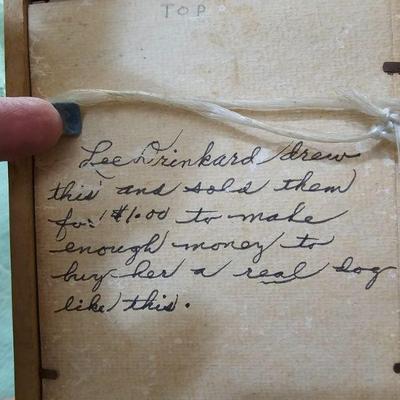 TOP
Lee Drinkard drew
this and sold them
for $1.00 to make
enough money to
buy her a real dog
like this.